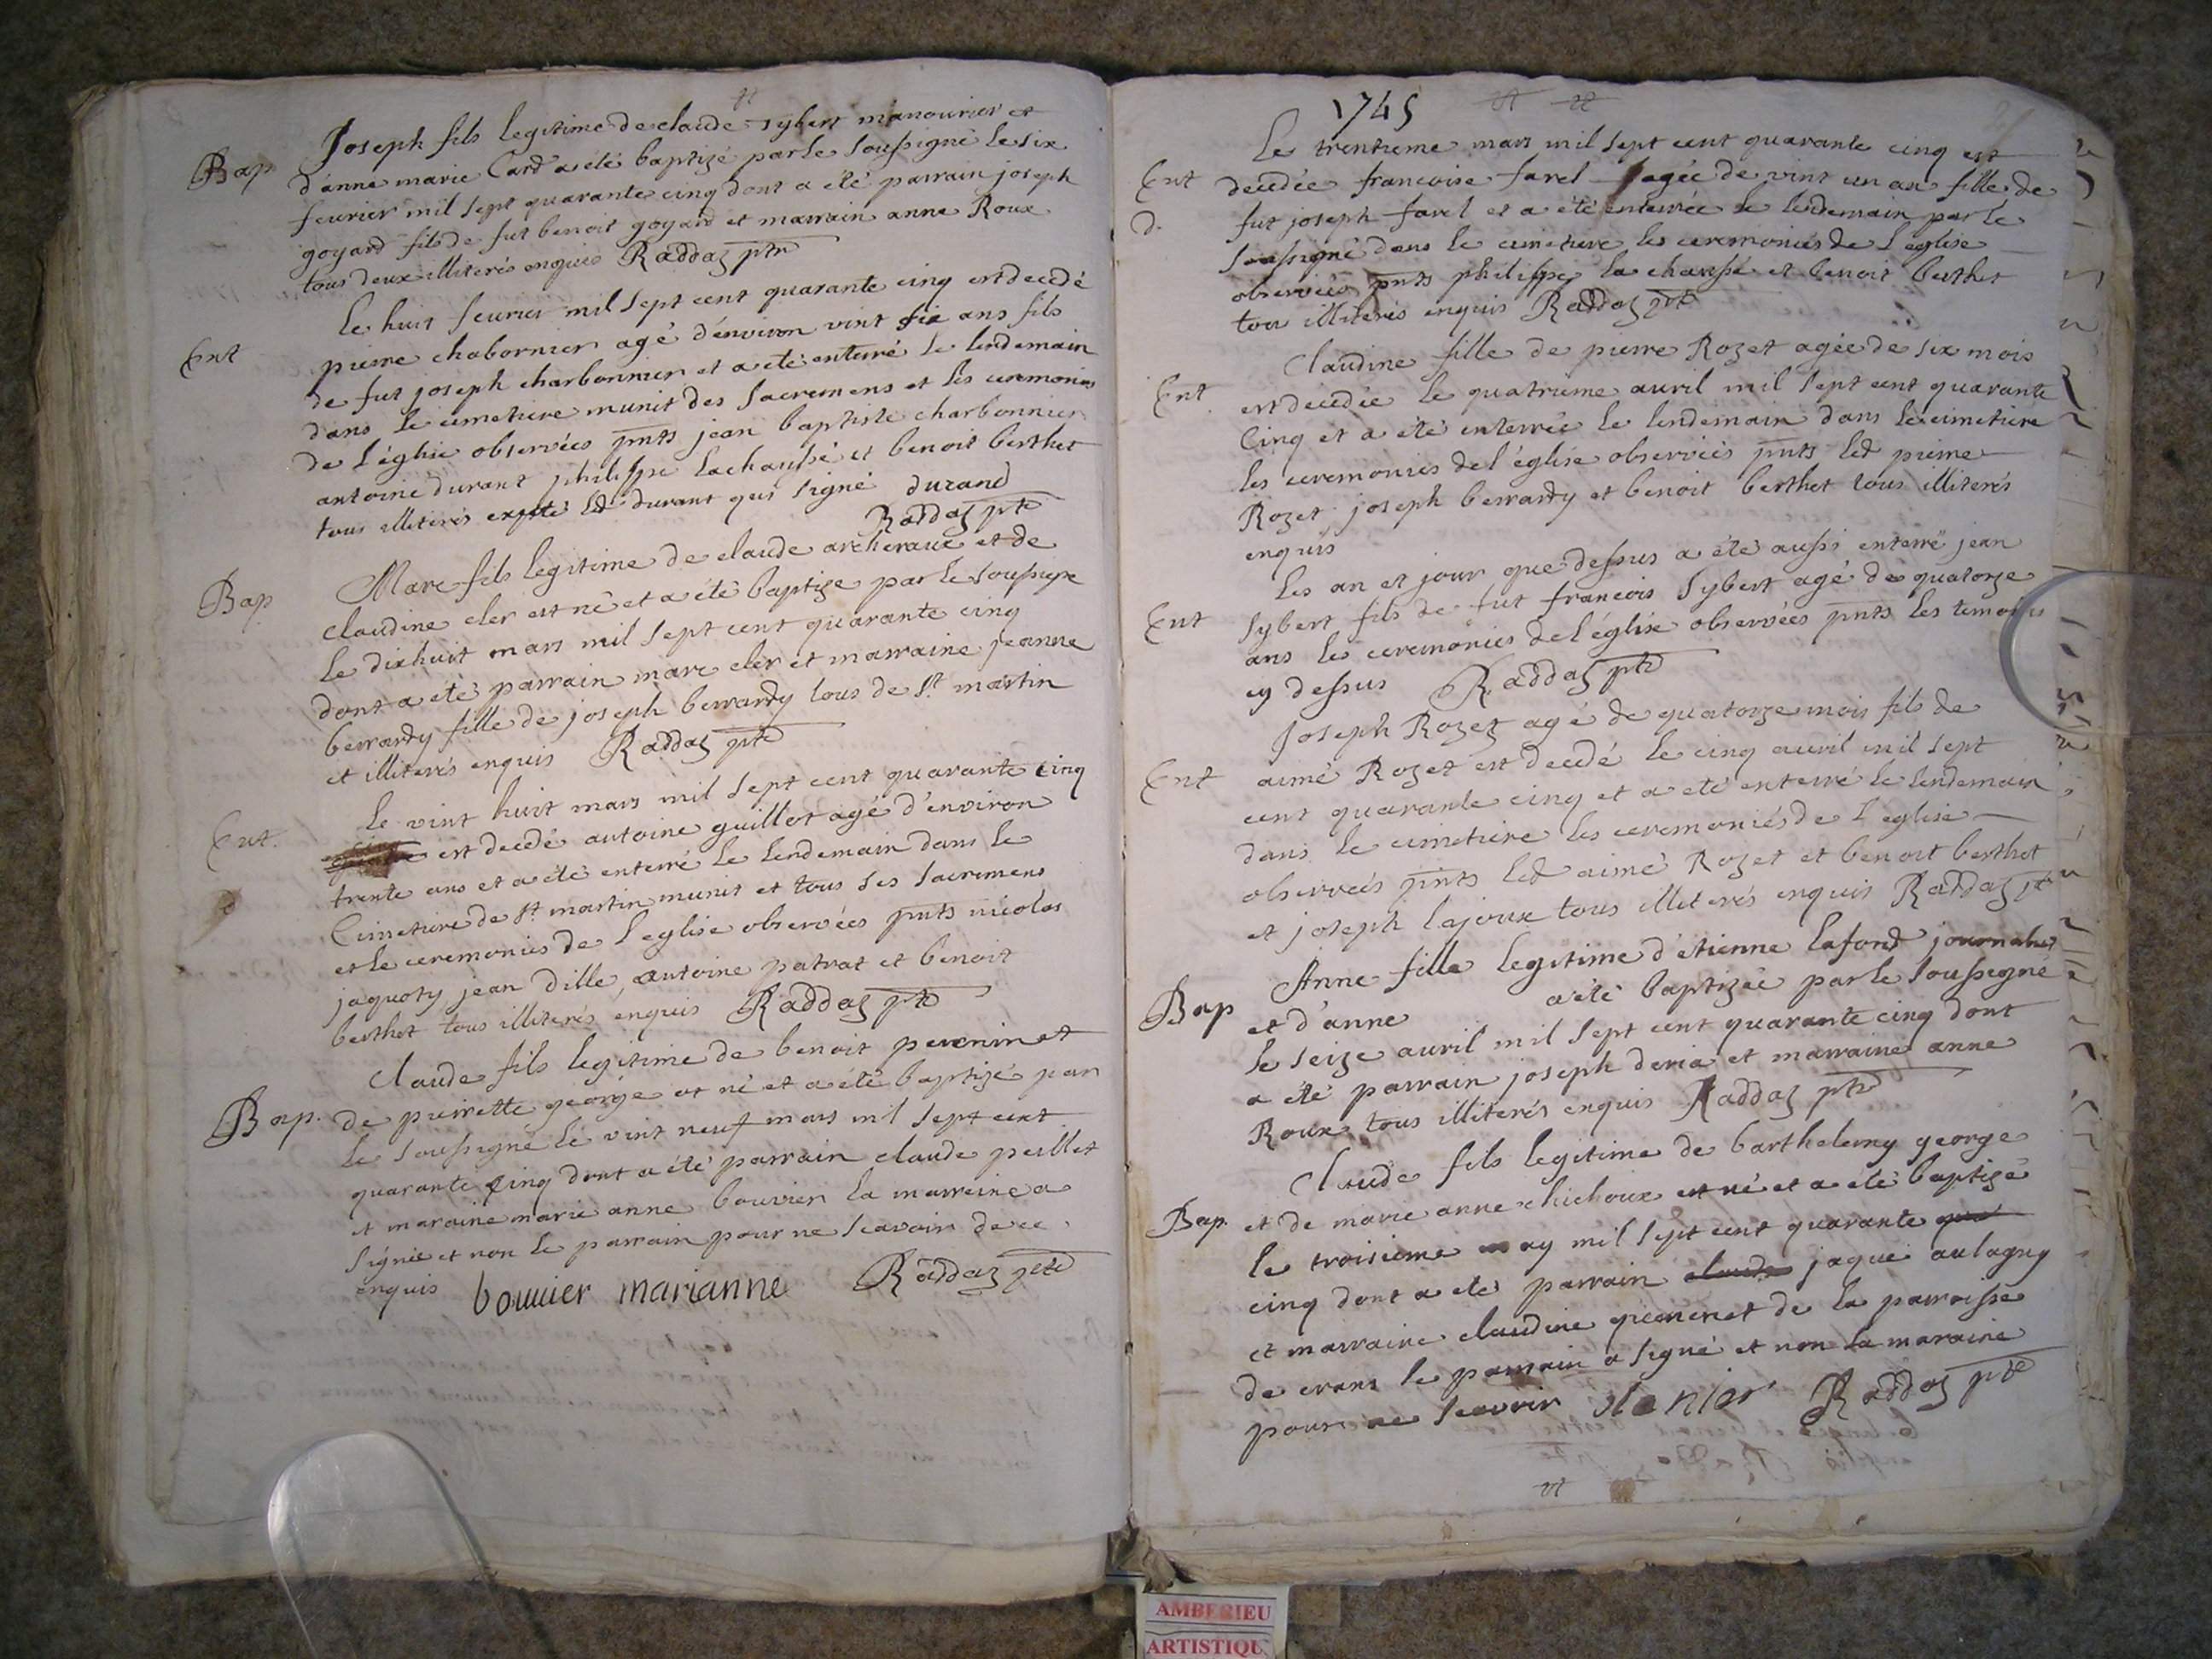 Bap
Joseph fils legitime de claude sybert manouvrier et
d'anne marie Card a été baptizé par le soussigné le six
fevrier mil sept quarante cinq dont a été parrain joseph
goyard fils de fut benoit goyard et marrain anne Roux
tous deux illiterés enquis Raddaz ptre
Ent
Le huit fevrier mil sept cent quarante cinq est decedé
pierre chabornier agé d'environ vint six ans fils
de fut joseph charbonnier et a eté enterré le lendemain
dans le cimetiere munit des sacremens et les ceremonies
de l'églisie observées pnts jean baptiste charbonnier
antoine durant philippe lachaussé et benoit berthet
tous illiterés expté led durant qui signé durand
Raddaz ptre
Bap
Marc fils legitime de claude archeraux et de
claudine cler est né et a été baptize par le soussigné
le dixhuit mars mil sept cent quarante cinq
dont a eté parrain marc cler et marraine jeanne
berrardy fille de joseph berrardy tous de St martin
et illiterés enquis Raddaz ptre
Ent.
Le vint huit mars mil sept cent quarante cinq
est decedé antoine guillot agé d'environ
trente ans et a été enterré le lendemain dans le
Cimetiere de St martin munit et tous ses sacremens
et le ceremonies de l'eglise observées pnts nicolas
jaquoty jean dille, antoine patrat et benoit
berthet tous illiterés enquis Raddaz ptre
Bap.
Claude fils legitime de benoit perrninet
de pierrette george et né et a été baptizé par
le soussigné le vint neuf mars mil sept cent
quarante cinq dont a été parrain claude peillet
et maraine marie anne bouvier la marreine a
signée et non le parrain pour ne scavoir de ce
enquis bouvier marianne Raddaz ptre
1745
Ent
d.
Le trentieme mars mil sept cent quarante cinq est
decedée francoise farel agée de vint un an fille de
fut joseph farel et a été enterrée le lendemain par le
soussigné dans le cimetiere les ceremonies de l'eglise
observées pnts philippe la chaussé et benoit berthet
tous illiterés enquis Raddaz ptre
Ent.
Claudine fille de pierre Rozet agée de six mois
est decedée le quatrieme avril mil sept cent quarante
Cinq et a été enterrée le lendemain dans le cimetiere
les ceremonies de l'église observées pnts led pierre
Rozet joseph berrardy et benoit berthet tous illiterés
enquis
Ent
Les an et jour que dessus a été aussi enterré jean
Sybert fils de fut francois Sybert agé de quatorze
ans les ceremonies de l'église observées pnts les temoins
cy dessus Raddaz ptre
Ent
Joseph Rozet agé de quatorze mois fils de
aimé Rozet est decedé le cinq avril mil sept
cent quarante cinq et a eté enterré le lendemain
dans le cimetiere les ceremoniés de l'eglise
observeés pnts led aimé Rozet et benoit berthet
et joseph lajoux tous illiterés enquis Raddaz ptre
Bap
Anne fille legitime d'etienne lafond journalier
et d'anne a été baptizée par le soussigné
le seize avril mil sept cent quarante cinq dont
a été parrain joseph deria et marraine anne
Roux tous illiterés enquis Raddaz ptre
Bap.
Claude fils legitime de barthelemy george
et de marie anne chichoux est né et a été baptizé
le troisieme may mil sept cent quarante
cinq dont a eté parrain claude jaque aulagny
et marraine claudine de la parroisse
de crans le parrain a signé et non la maraine
pour ne scavoir Raddaz ptre
AMBERIEU
ARTISTIQU